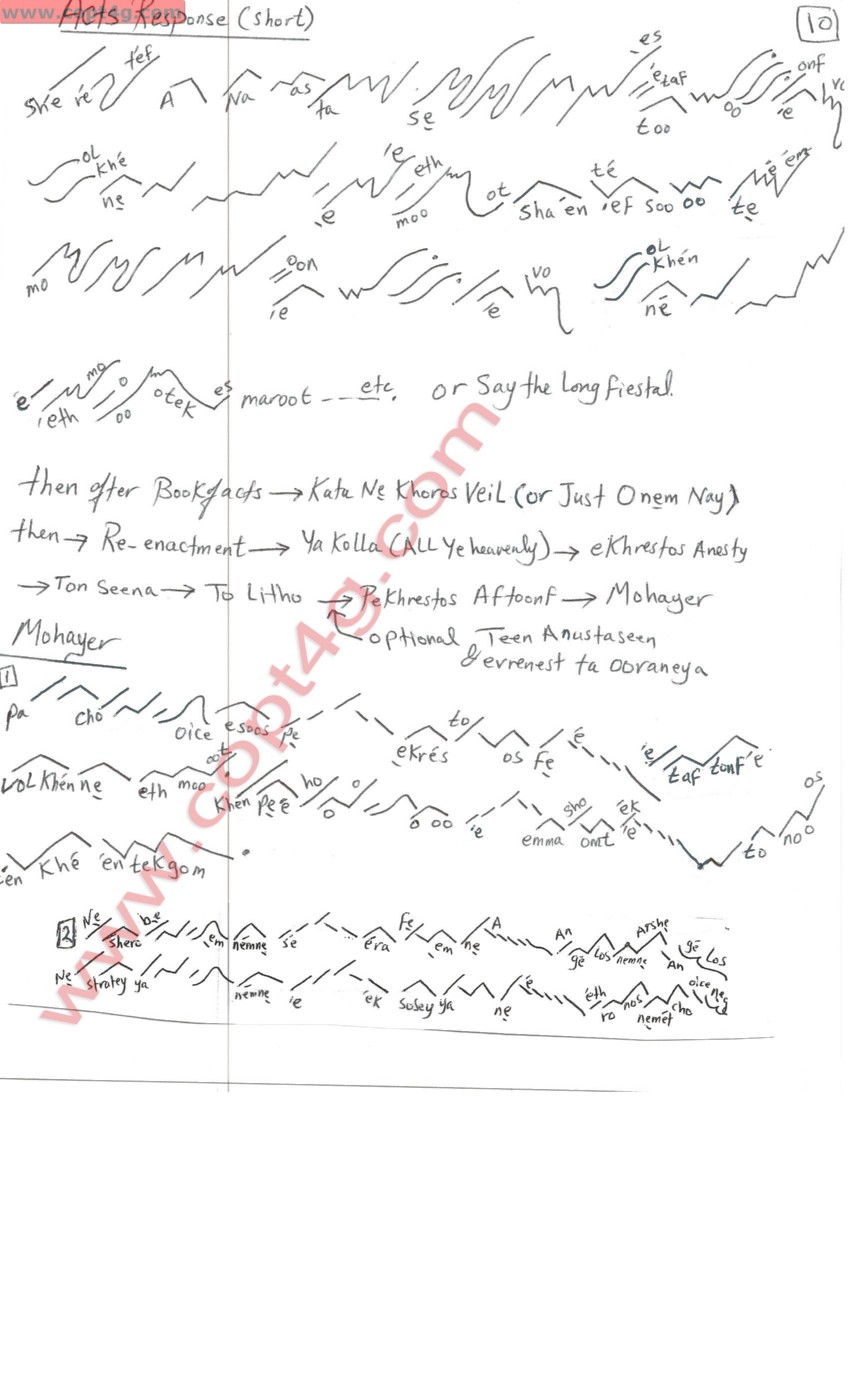 www.copt4g.com
Acts Response (short)
10
She re tef A Na as ta se es etaf too oo ie onf vo
OL Khé ne e ie eth moo ot Sha en té ef soo oo te é em
mo oon ie ie vo OL Khén né
e ieth mo oo o otek es maroot --- etc. or Say the Long fiestal.
then after Book of acts → Kata Ne Khoros Veil (or Just Onem Nay)
then → Re-enactment → Ya Kolla (ALL Ye heavenly) → eKhrestos Anesty
→ Ton Seena → To Litho → PeKhrestos Aftoonf → Mohayer
optional Teen Anustaseen
& evrenest ta ooraneya
Mohayer
1
pa cho oice esoos pe ekrés to os Fe é é taf tonf é
vOL Khén ne eth moo oot Khen pe é ho o o o oo ie emma sho omt ék ie to noo os
en Khé en tekgom
2
Ne shere be em nemne se éra Fe em ne A An gé Los nemne Arshe An gé Los
Ne stratey ya nemne ie ék Sosey ya ne é éth ro nos nemét cho oice
www.copt4g.com